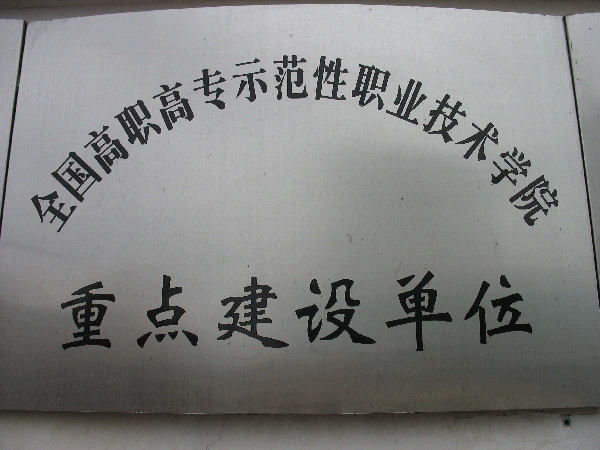 全国高职高专示范性职业技术学院
重点建设单位